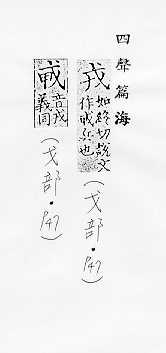 四聲篇海
戎
如終切說文
作戎兵也
（戈部・947）
音戎
義同
（戈部・947）